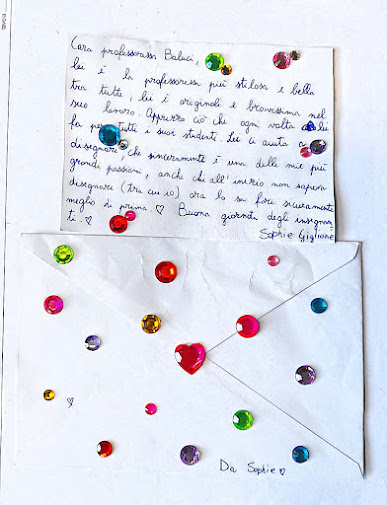 Cara professoressa Baluci,
lei è la professoressa più stilosa e bella
tra tutte, lei è originale e bravissima nel
suo lavoro. Apprezzo ciò che ogni volta lei
fa per tutti i suoi studenti. Lei ci aiuta a
disegnare, che sinceramente è una delle mie più
grandi passioni, anche chi all'inizio non sapeva
disegnare (tra cui io) ora lo sa fare sicuramente
meglio di prima. ♡ Buona giornata degli insegnan
ti. ♡
Sophie Giglione
♡
Da Sophie ♡